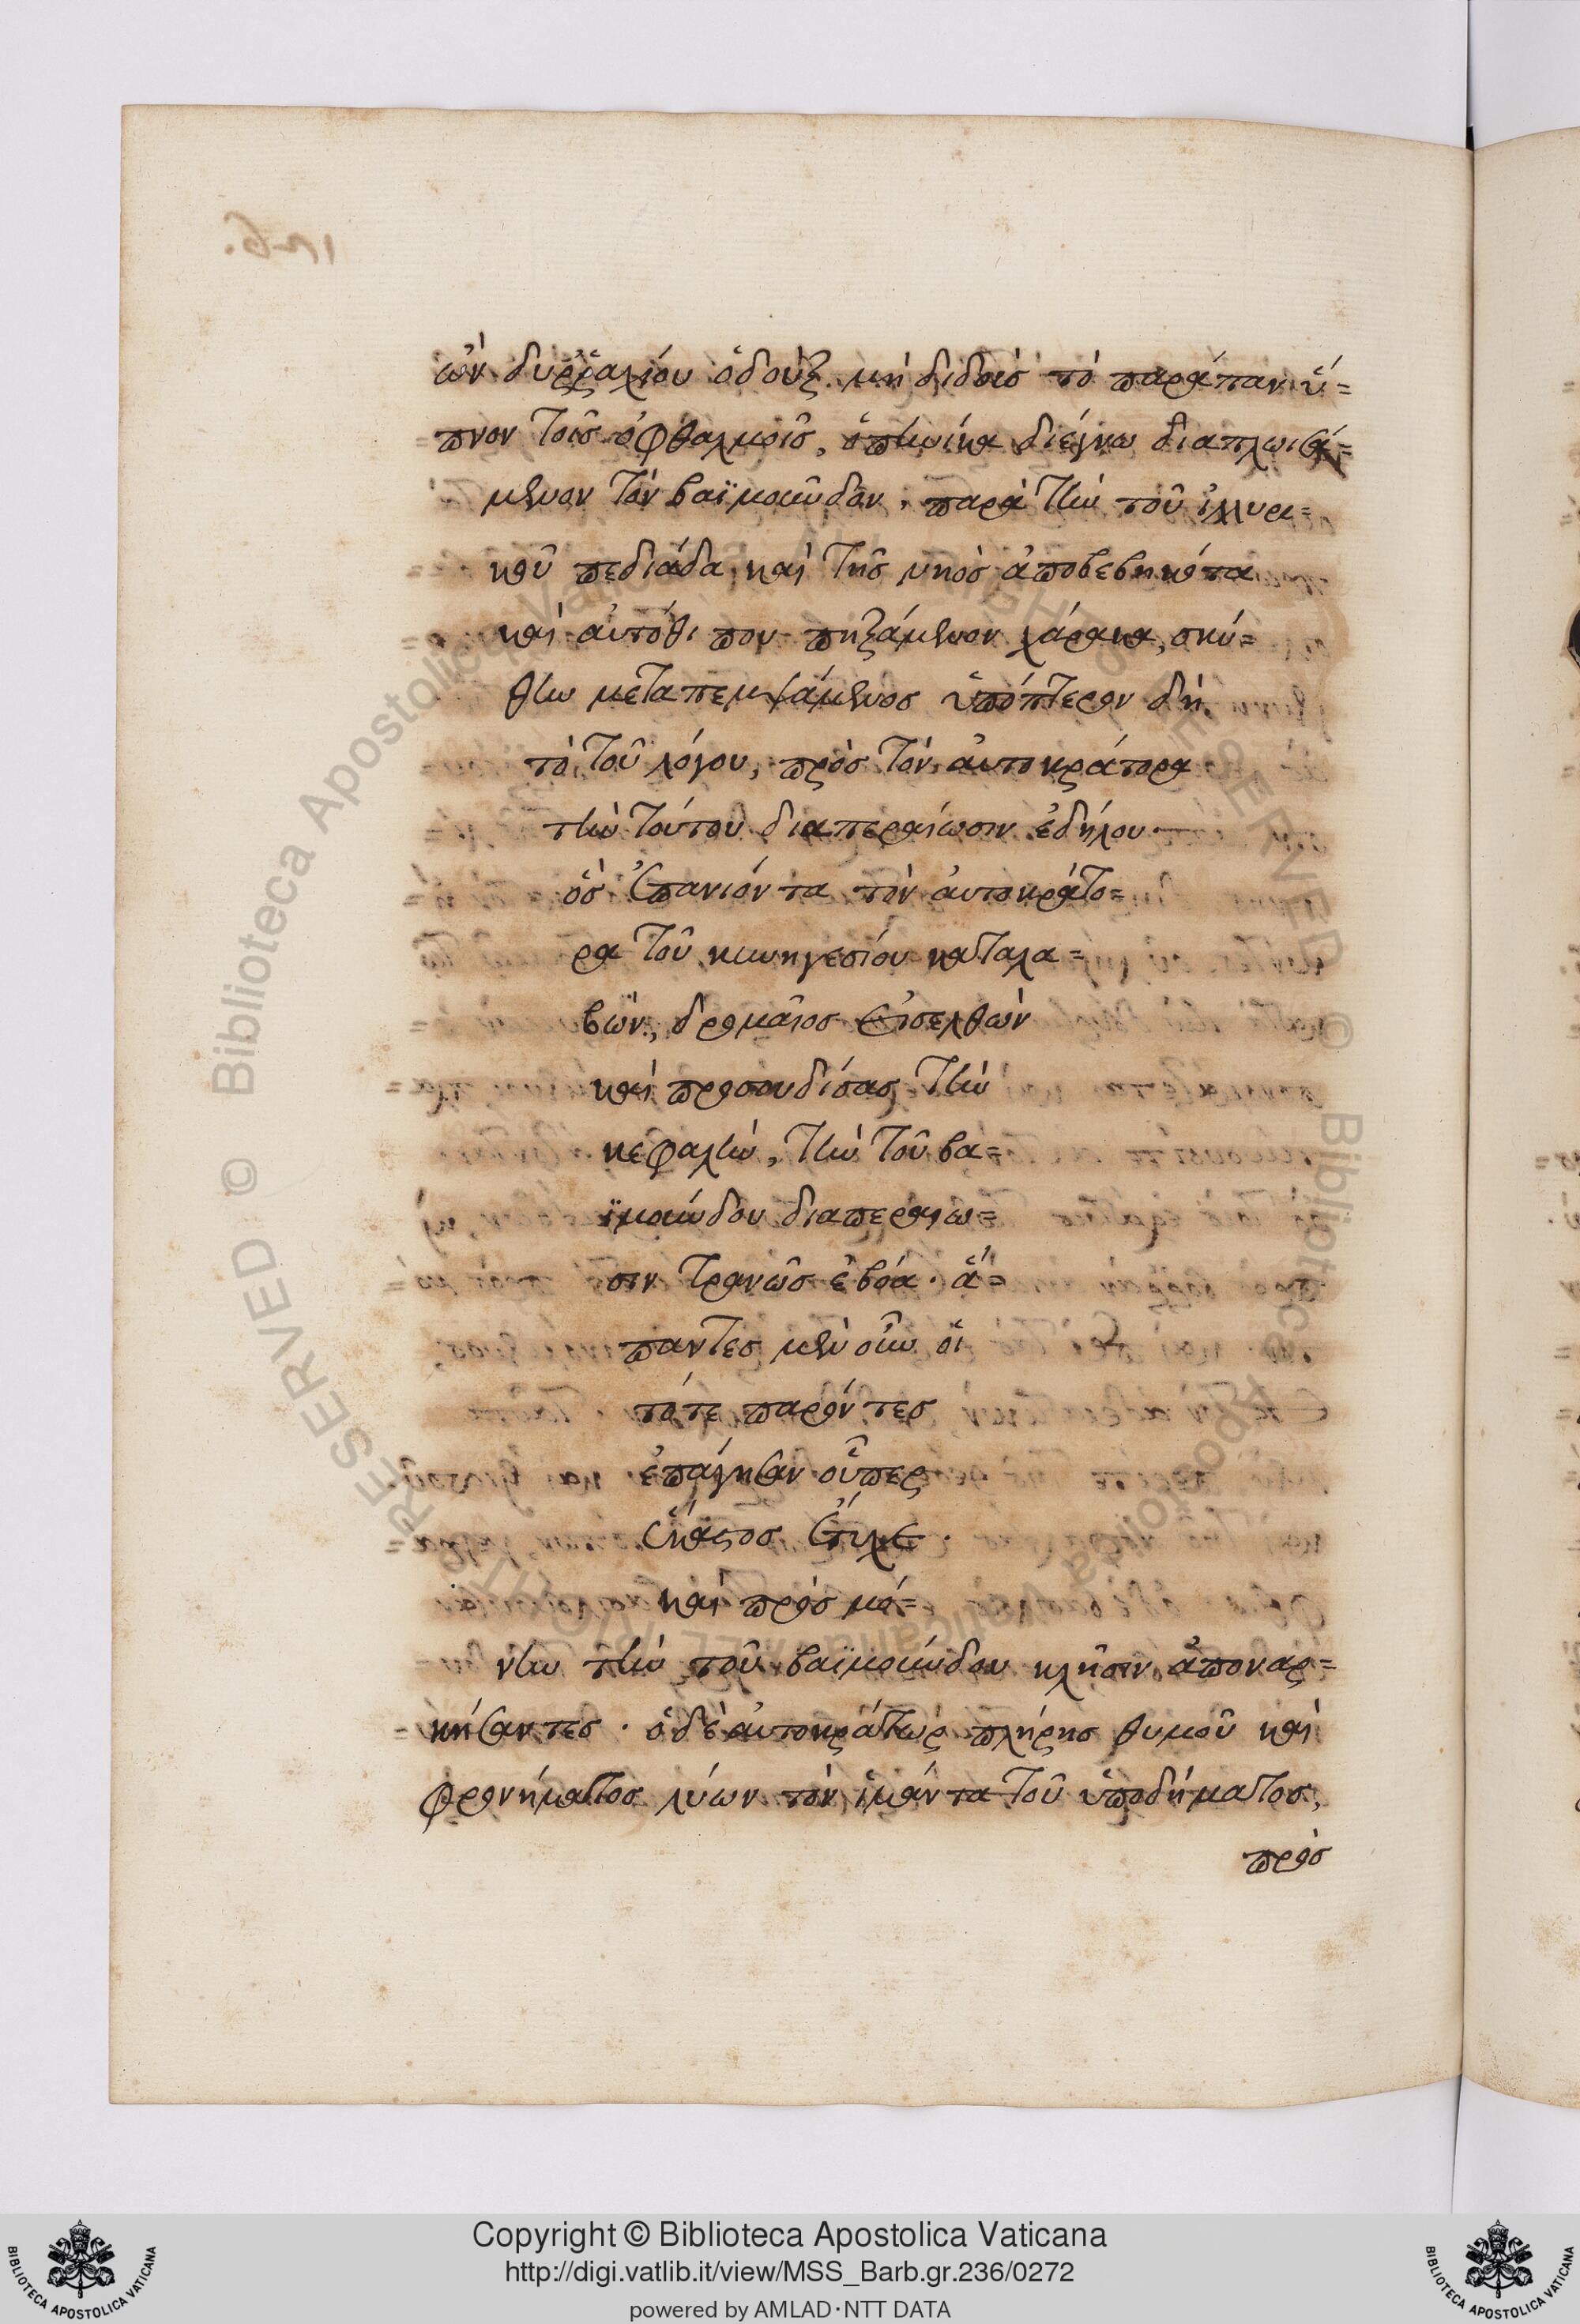 ὢν δυρῥαχίου ὁ δοὺξ. μὴ διδοὺς τὸ παράπαν ὕ=
πνον τοῖς ὀφθαλμοῖς, ὁπηνίκα διέγνω διαπλωισά=
μενον τὸν βαϊμοῦνδον, παρὰ τὴν τοῦ ἰλλυρι=
κοῦ πεδιάδα καὶ τῆς νηὸς ἀποβεβηκότα
καὶ αὐτόθι που πηξάμενον χάρακα, σκύ=
θην μεταπεμψάμενος ὑπόπτερον δὴ
τὸ τοῦ λόγου, πρὸς τὸν αὐτοκράτορα
τὴν τούτου διαπεραίωσιν ἐδήλου
ὃς ἐπανιόντα τὸν αὐτοκράτο=
ρα τοῦ κυνηγεσίου καταλα=
βὼν, δρομαῖος εἰσελθὼν
καὶ προσουδίσας τὴν
κεφαλὴν, τὴν τοῦ βα=
ϊμούνδου διαπεραίω=
σιν τρανῶς ἐβόα. ἅ=
παντες μὲν οὖν οἱ
τότε παρόντες
ἐπάγησαν οὗπερ
ἕκαστος ἔτυχε.
καὶ πρὸς μό=
νην τὴν τοῦ βαϊμούνδου κλῆσιν ἀποναρ=
κήσαντες. ὁ δὲ αὐτοκράτωρ πλήρης θυμοῦ καὶ
φρονήματος λύων τὸν ἱμάντα τοῦ ὑποδήματος,
πρὸς
Copyright © Biblioteca Apostolica Vaticana
http://digi.vatlib.it/view/MSS_Barb.gr.236/0272
powered by AMLAD·NTT DATA
BIBLIOTECA APOSTOLICA VATICANA
BIBLIOTECA APOSTOLICA VATICANA